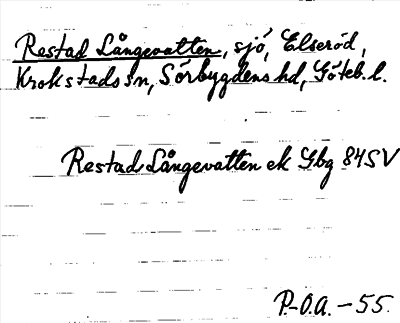 Restad Långevatten, sjö, Elseröd,
Krokstads sn, Sörbygdens hd, Göteb. l.
Restad Långevatten ek Gbg 84SV
P.-O.A. - 55.